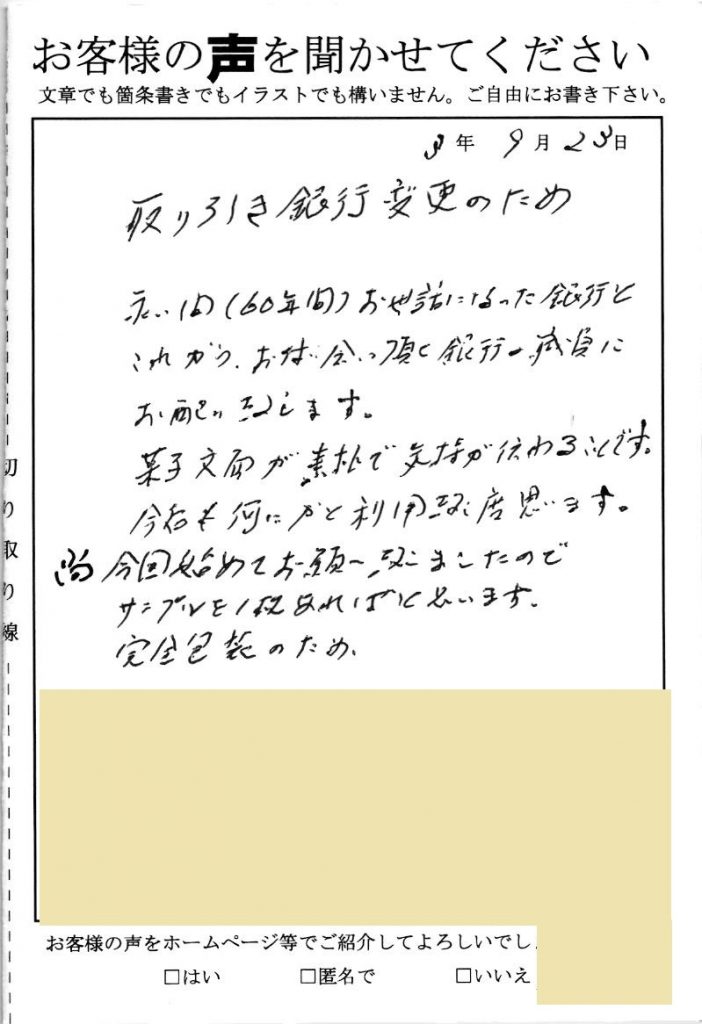 お客様の声を聞かせてください
文章でも箇条書きでもイラストでも構いません。ご自由にお書き下さい。
3年 9月23日
取り引き銀行変更のため
永い間(60年間)お世話になった銀行と
これから、お付合い頂く銀行の職員に
お配り致します。
菓子文面が素朴で気持が伝わることです。
今后も何にかと利用致し度思います。
尚 今回始めてお願い致しましたので
サンプルを1枚あればと思います。
完全包装のため、
切り取り線
お客様の声をホームページ等でご紹介してよろしいでし
□はい □匿名で □いいえ